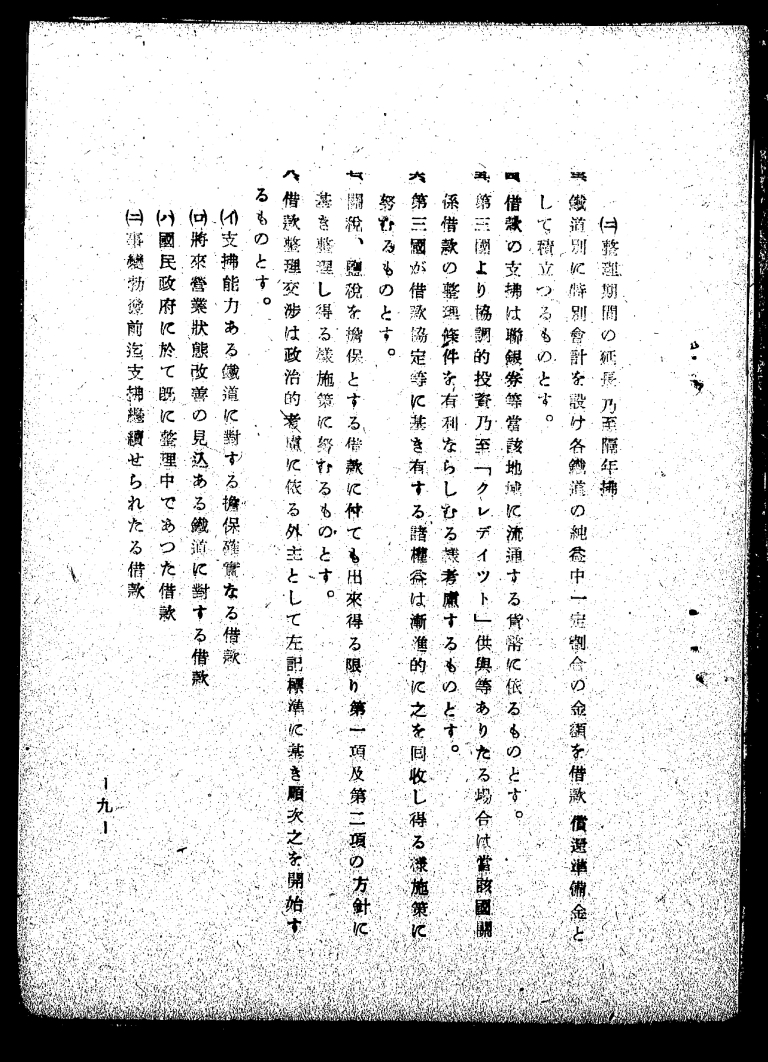 ㈡整理期間の延長乃至隔年拂
三、鐵道別に特別會計を設け各鐵道の純益中一定割合の金額を借款償還準備金と
して積立つるものとす。
四、借款の支拂は聯銀券等當該地域に流通する貨幣に依るものとす。
五、第三國より協調的投資乃至「クレデイツト」供與等ありたる場合は當該國關
係借款の整理條件を有利ならしむる樣考慮するものとす。
六、第三國が借款協定等に基き有する諸權益は漸進的に之を回收し得る樣施策に
努むるものとす。
七、關稅、鹽稅を擔保とする借款に付ても出來得る限り第一項及第二項の方針に
基き整理し得る樣施策に努むるものとす。
八、借款整理交渉は政治的考慮に依る外主として左記標準に基き順次之を開始す
るものとす。
(イ)支拂能力ある鐵道に對する擔保確實なる借款
(ロ)將來營業狀態改善の見込ある鐵道に對する借款
(ハ)國民政府に於て既に整理中であつた借款
(ニ)事變勃發前迄支拂繼續せられたる借款
―九―